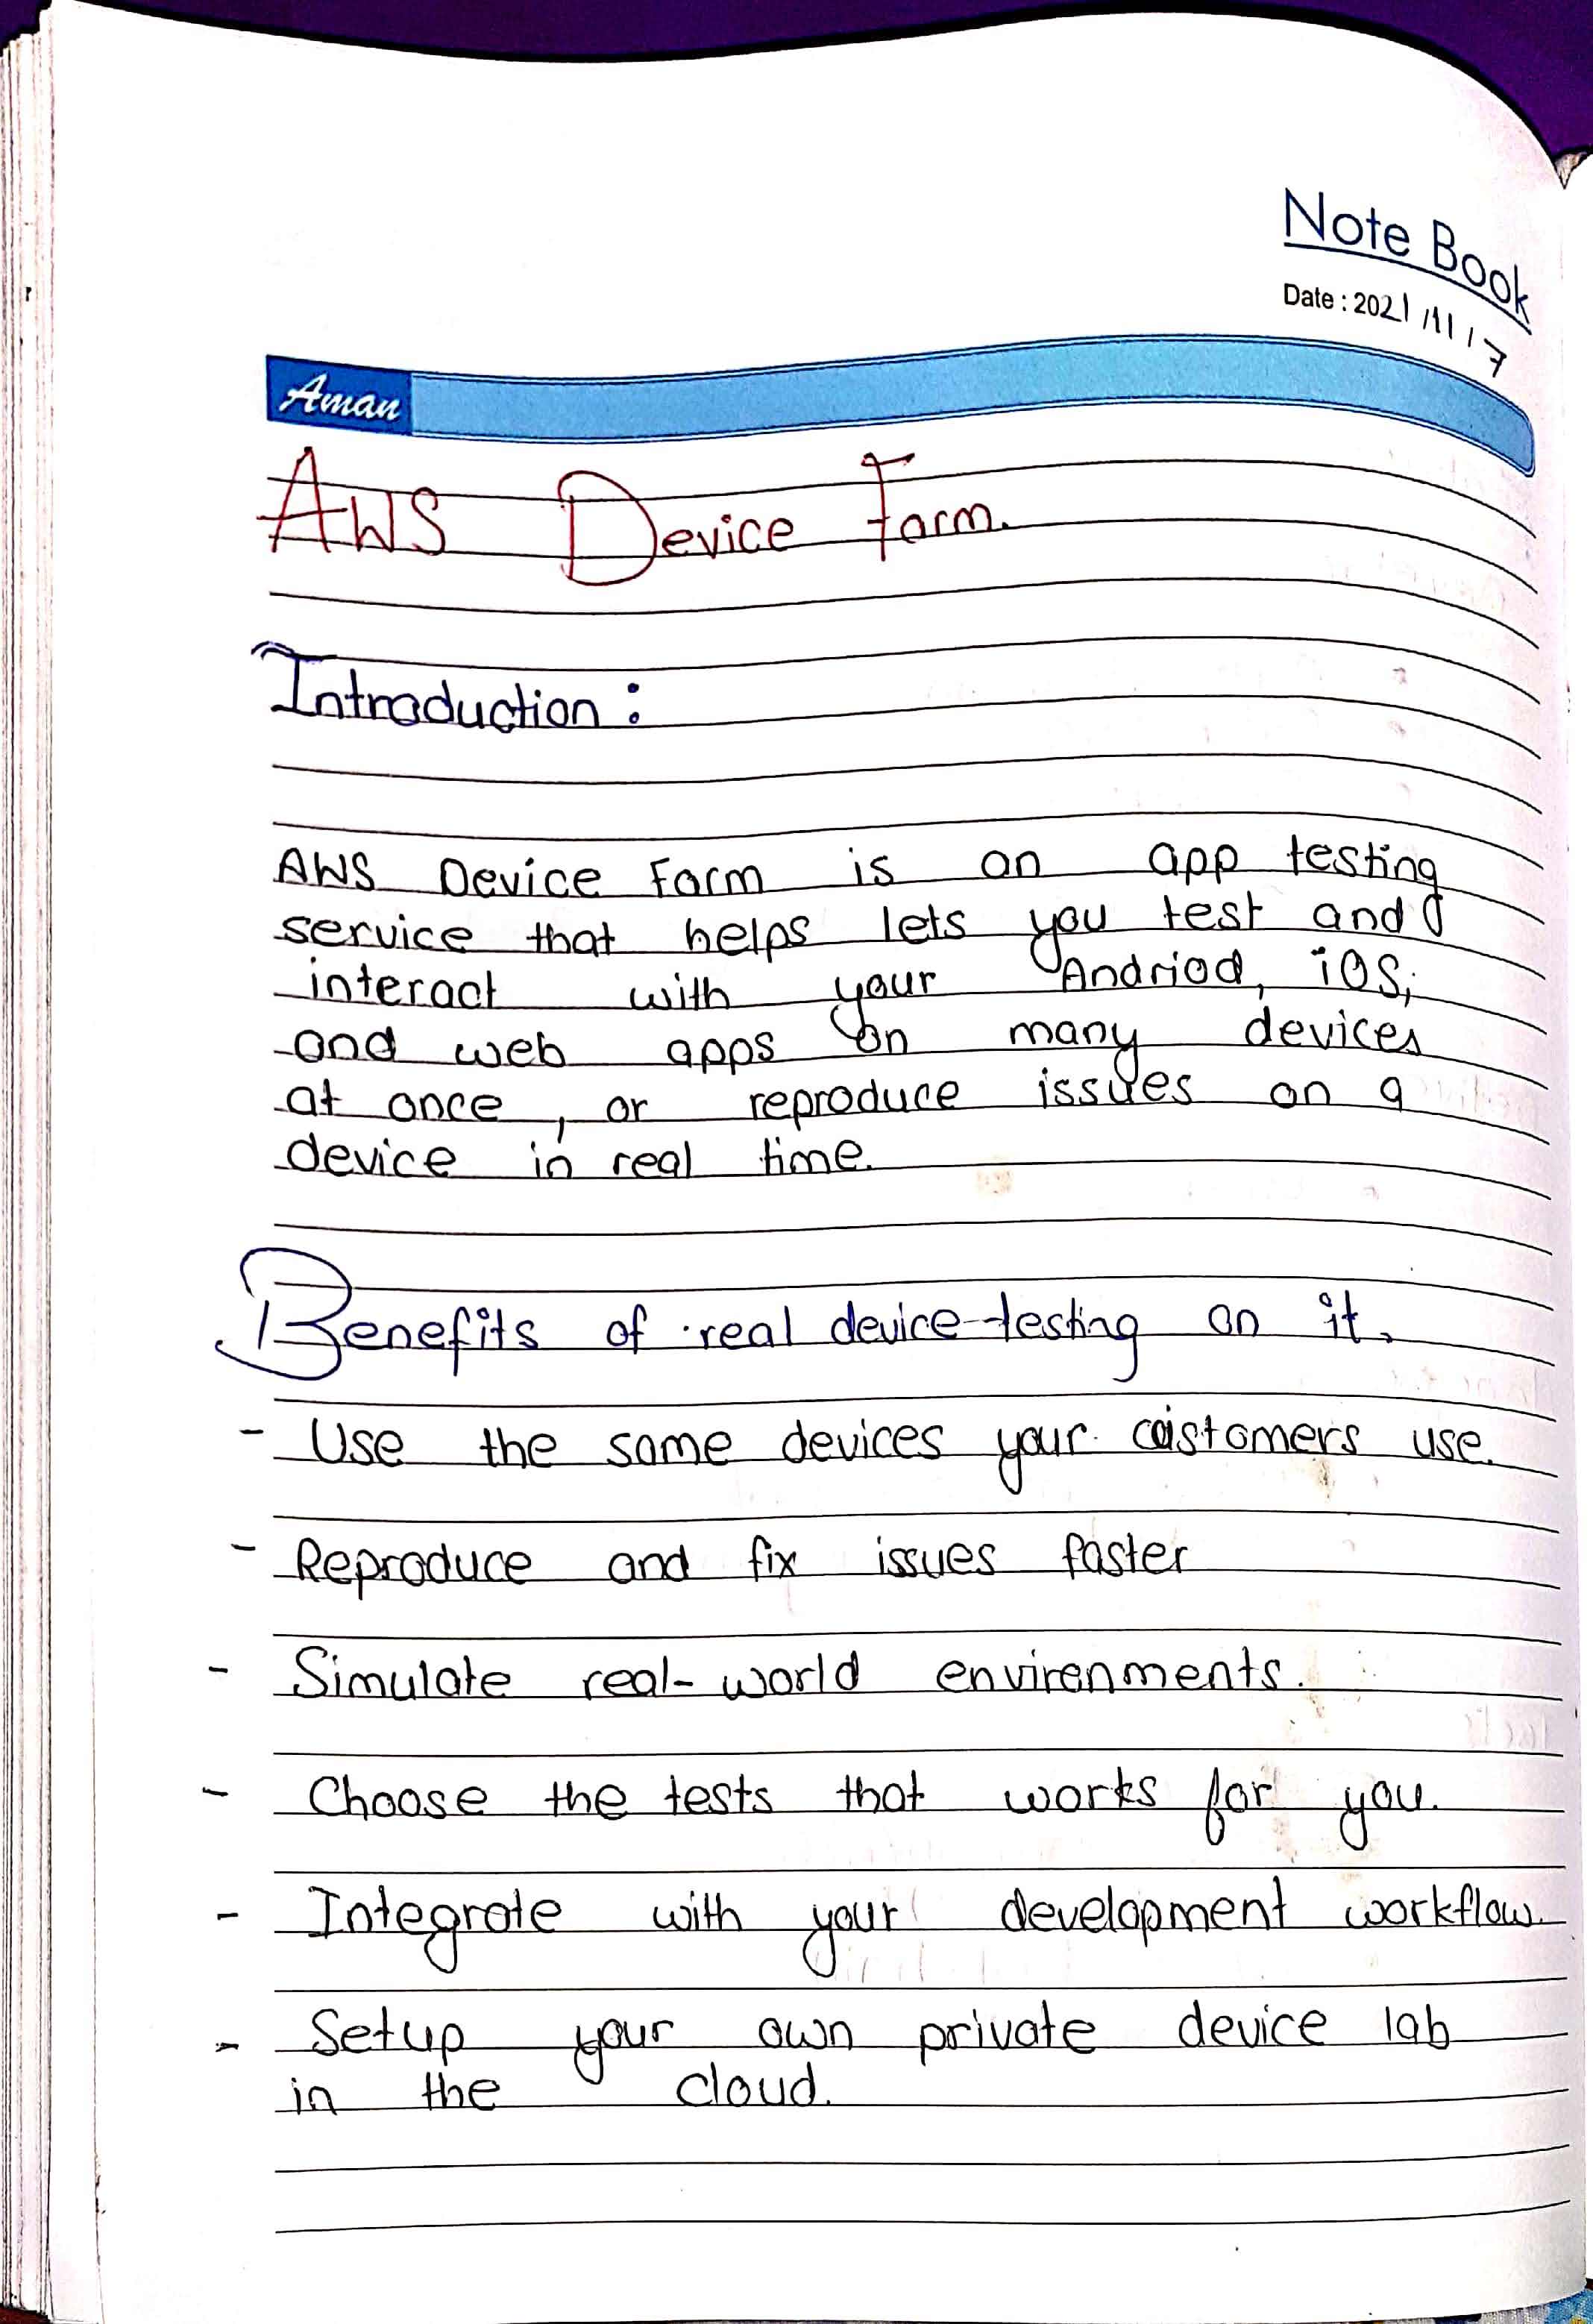 Note Book
Date : 2021/11/7
Aman
AWS Device Farm.
Introduction :
AWS Device Farm is an app testing
service that helps lets you test and
interact with your Andriod, iOS,
and web apps on many devices
at once, or reproduce issues on a
device in real time.
Benefits of real device-testing on it.
- Use the same devices your customers use.
- Reproduce and fix issues faster
- Simulate real-world environments.
- Choose the tests that works for you.
- Integrate with your development workflow.
- Setup your own private device lab
in the cloud.